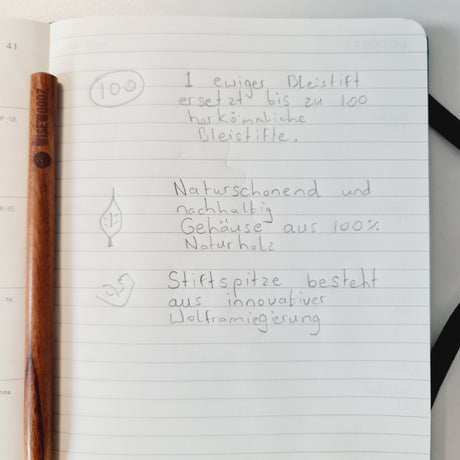 41
WISEWOODZ
100
1 ewiger Bleistift
ersetzt bis zu 100
herkömmliche
Bleistifte.
Naturschonend und
nachhaltig
Gehäuse aus 100%
Naturholz
0,5
Stiftspitze besteht
aus innovativer
Wolframlegierung
TK